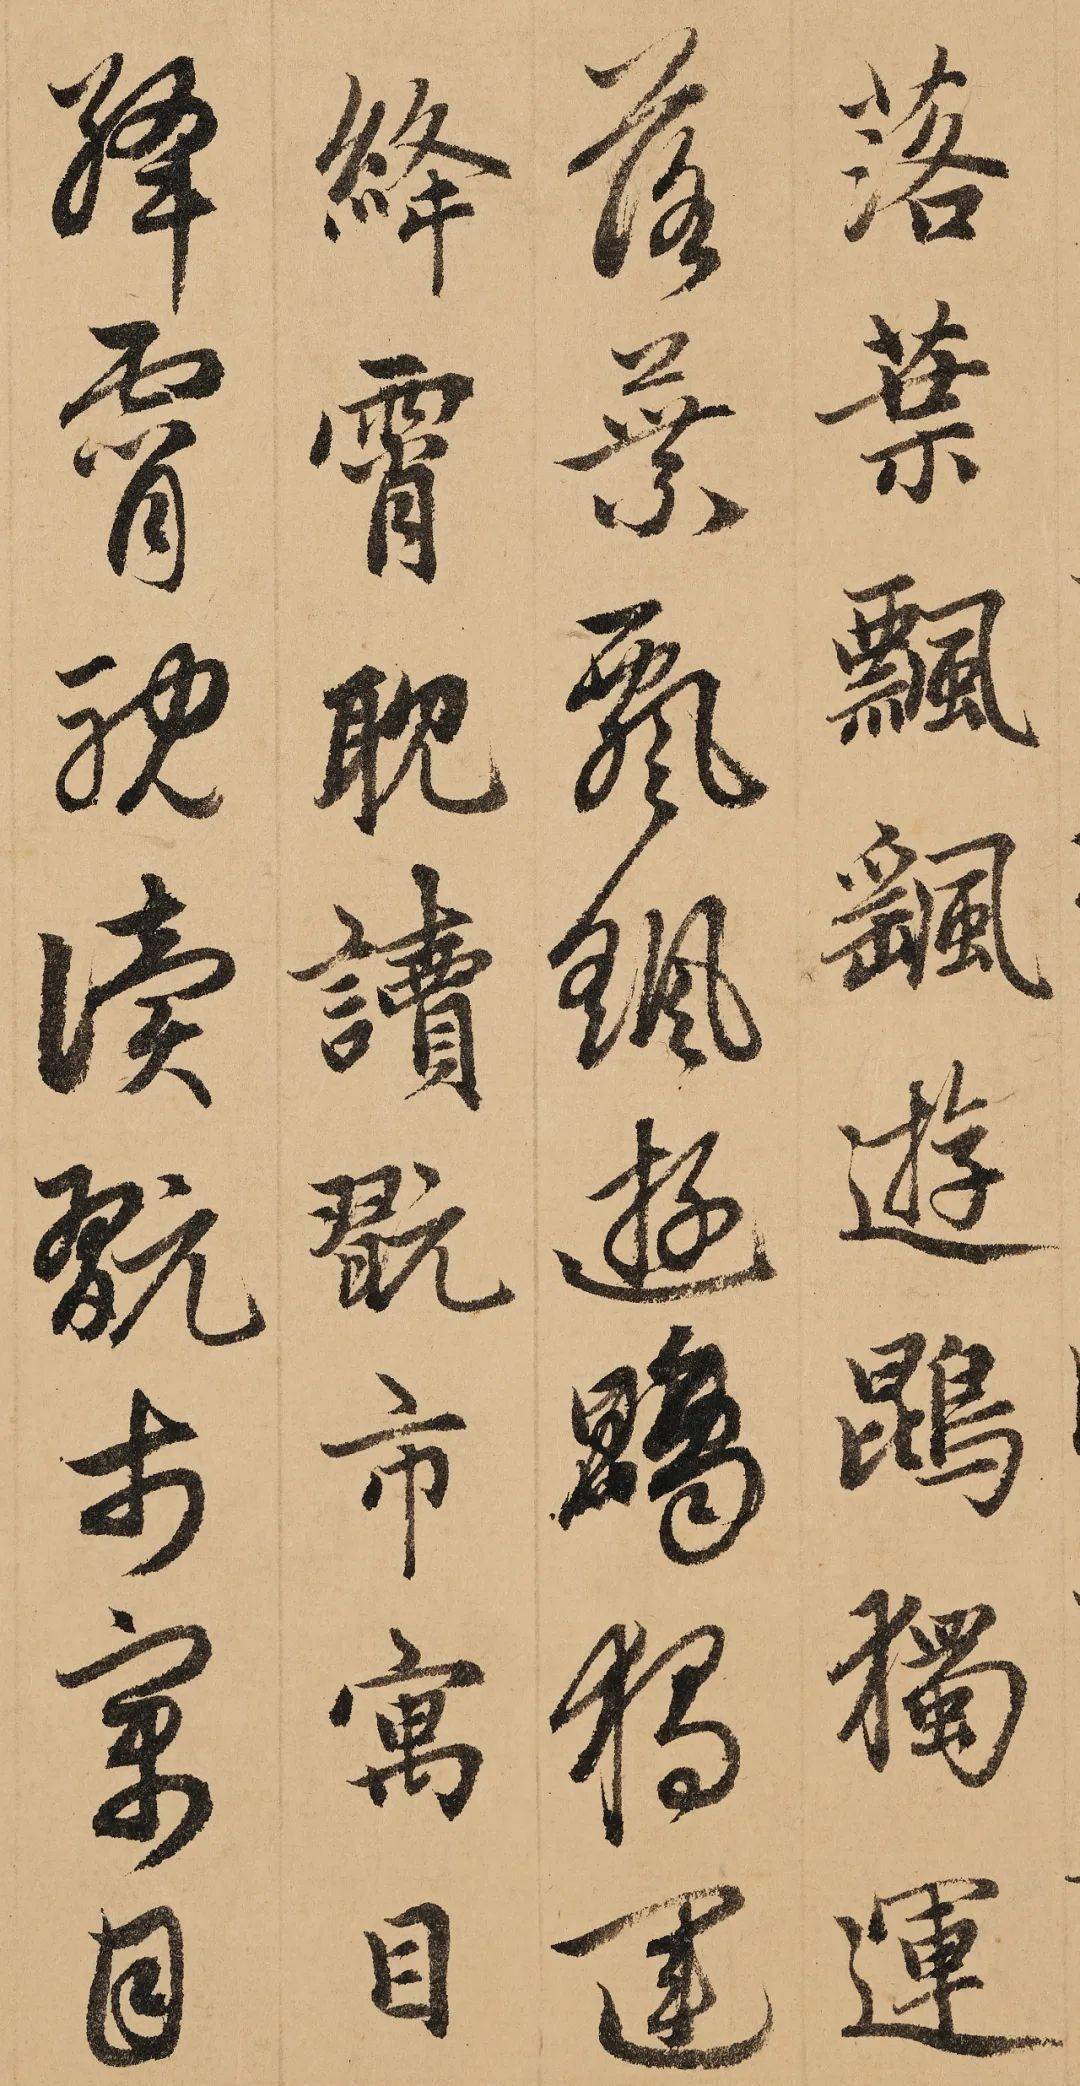 落葉飄颻遊鵾獨運
落葉飄颻遊鵾獨運
絳霄耽讀翫市寓目
絳霄耽讀翫市寓目